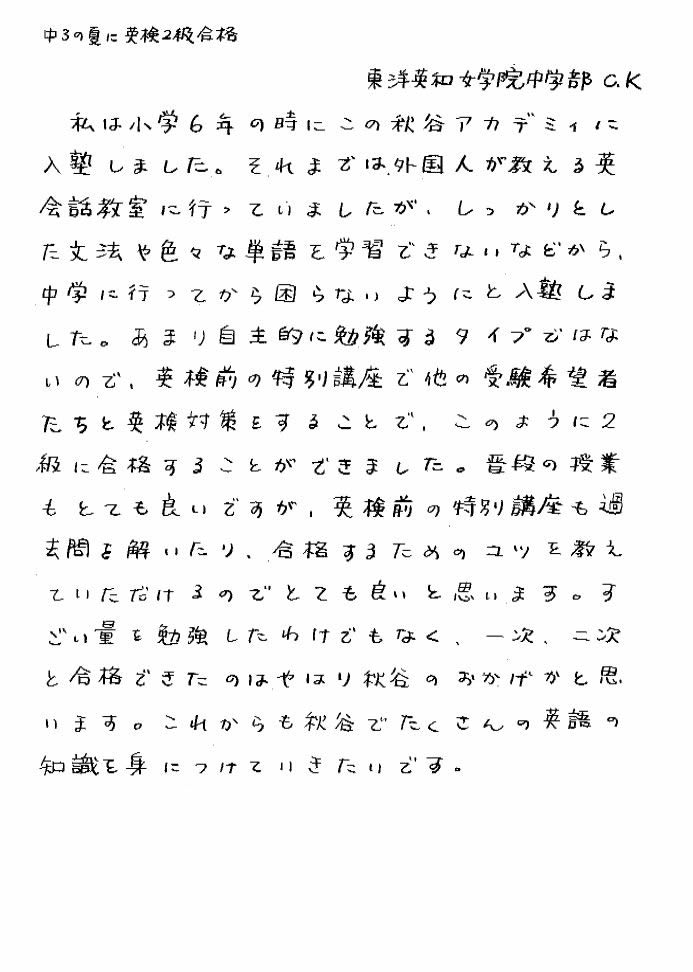 中3の夏に英検2級合格
東洋英和女学院中学部 C.K
私は小学6年の時にこの秋谷アカデミィに
入塾しました。それまでは外国人が教える英
会話教室に行っていましたが、しっかりとし
た文法や色々な単語を学習できないなどから、
中学に行ってから困らないようにと入塾しま
した。あまり自主的に勉強するタイプではな
いので、英検前の特別講座で他の受験希望者
たちと英検対策をすることで、このように2
級に合格することができました。普段の授業
もとても良いですが、英検前の特別講座も過
去問を解いたり、合格するためのコツを教え
ていただけるのでとても良いと思います。す
ごい量を勉強したわけでもなく、一次、二次
と合格できたのはやはり秋谷のおかげかと思
います。これからも秋谷でたくさんの英語の
知識を身につけていきたいです。